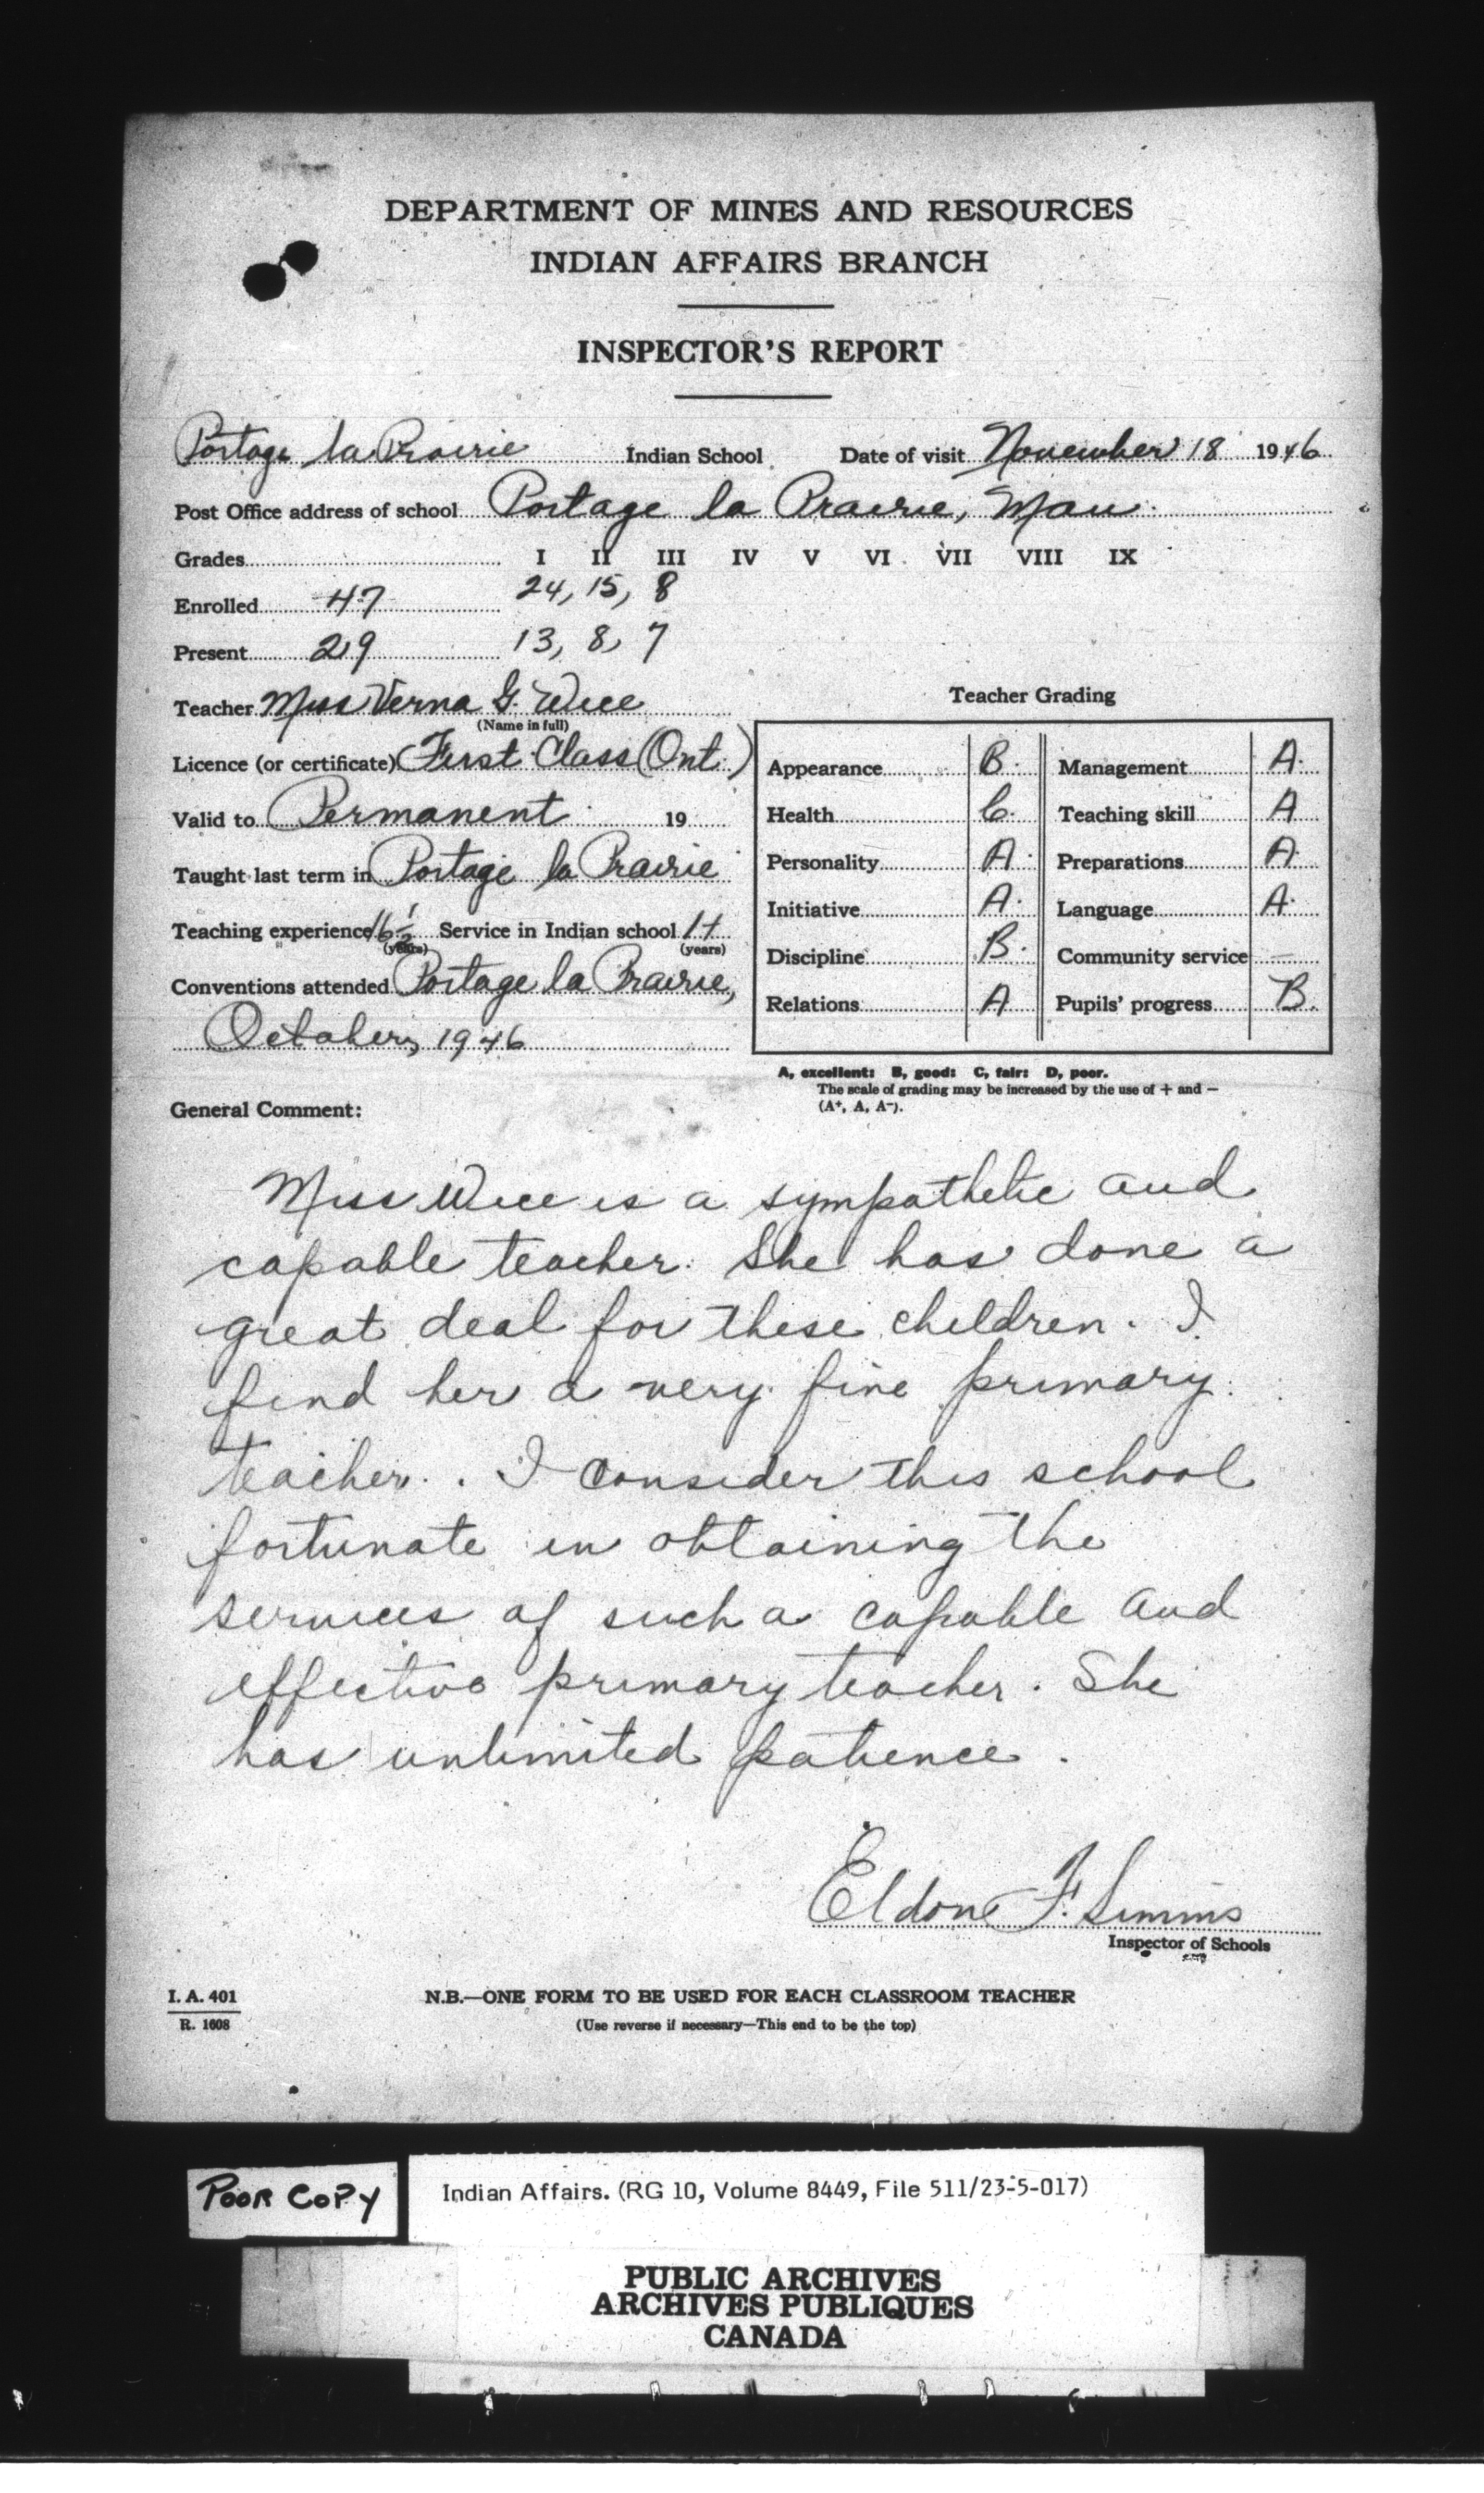 DEPARTMENT OF MINES AND RESOURCES
INDIAN AFFAIRS BRANCH
INSPECTOR'S REPORT
Portage la Prairie Indian School Date of visit November 18 1946
Post Office address of school Portage la Prairie, Man.
Grades I II III IV V VI VII VIII IX
Enrolled 47 24, 15, 8
Present 29 13, 8, 7
Teacher Miss Verna G. Wice
(Name in full)
Teacher Grading
Licence (or certificate) First Class (Ont.)
Valid to Permanent 19
Taught last term in Portage la Prairie
Teaching experience 16½ Service in Indian school 1+
(years) (years)
Conventions attended Portage la Prairie,
October, 1946
Appearance B. Management A.
Health C. Teaching skill A
Personality A. Preparations A.
Initiative A. Language A.
Discipline B. Community service —
Relations A Pupils' progress B.
A, excellent: B, good: C, fair: D, poor.
The scale of grading may be increased by the use of + and —
(A+, A, A-).
General Comment:
Miss Wice is a sympathetic and
capable teacher. She has done a
great deal for these children. I
find her a very fine primary
teacher. I consider this school
fortunate in obtaining the
services of such a capable and
effective primary teacher. She
has unlimited patience.
Eldon F. Simms
Inspector of Schools
I. A. 401
R. 1608
N.B.—ONE FORM TO BE USED FOR EACH CLASSROOM TEACHER
(Use reverse if necessary—This end to be the top)
POOR COPY
Indian Affairs. (RG 10, Volume 8449, File 511/23-5-017)
PUBLIC ARCHIVES
ARCHIVES PUBLIQUES
CANADA